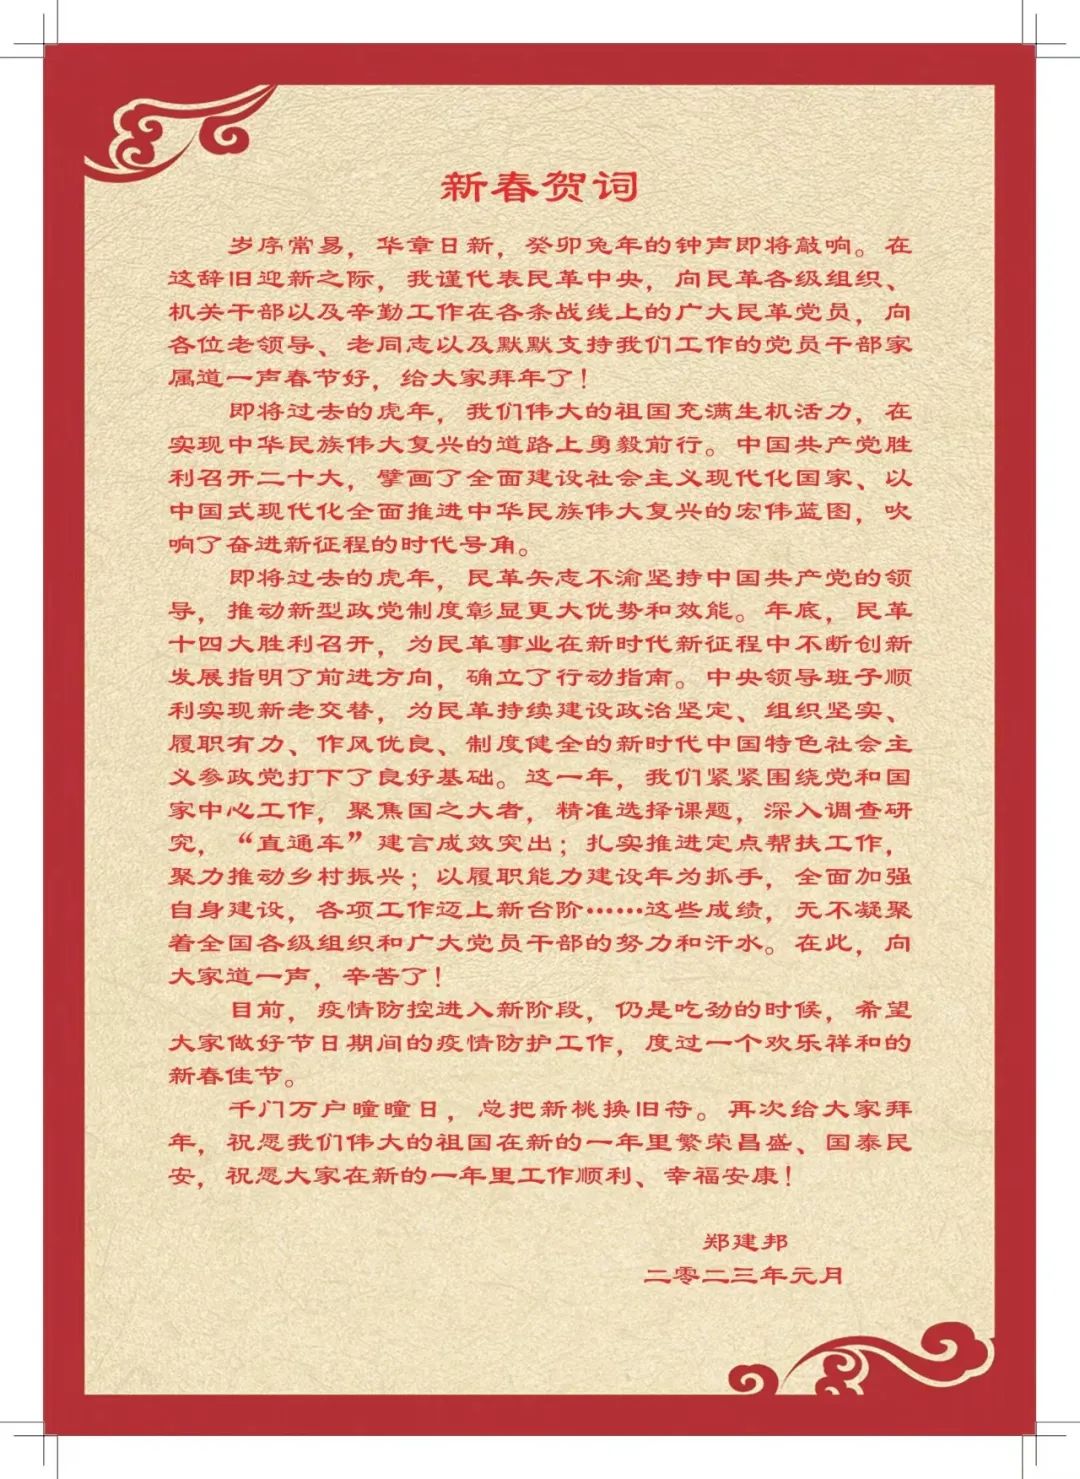 新春贺词
岁序常易，华章日新，癸卯兔年的钟声即将敲响。在
这辞旧迎新之际，我谨代表民革中央，向民革各级组织、
机关干部以及辛勤工作在各条战线上的广大民革党员，向
各位老领导、老同志以及默默支持我们工作的党员干部家
属道一声春节好，给大家拜年了！
即将过去的虎年，我们伟大的祖国充满生机活力，在
实现中华民族伟大复兴的道路上勇毅前行。中国共产党胜
利召开二十大，擘画了全面建设社会主义现代化国家、以
中国式现代化全面推进中华民族伟大复兴的宏伟蓝图，吹
响了奋进新征程的时代号角。
即将过去的虎年，民革矢志不渝坚持中国共产党的领
导，推动新型政党制度彰显更大优势和效能。年底，民革
十四大胜利召开，为民革事业在新时代新征程中不断创新
发展指明了前进方向，确立了行动指南。中央领导班子顺
利实现新老交替，为民革持续建设政治坚定、组织坚实、
履职有力、作风优良、制度健全的新时代中国特色社会主
义参政党打下了良好基础。这一年，我们紧紧围绕党和国
家中心工作，聚焦国之大者，精准选择课题，深入调查研
究，“直通车”建言成效突出；扎实推进定点帮扶工作，
聚力推动乡村振兴；以履职能力建设年为抓手，全面加强
自身建设，各项工作迈上新台阶……这些成绩，无不凝聚
着全国各级组织和广大党员干部的努力和汗水。在此，向
大家道一声，辛苦了！
目前，疫情防控进入新阶段，仍是吃劲的时候，希望
大家做好节日期间的疫情防护工作，度过一个欢乐祥和的
新春佳节。
千门万户曈曈日，总把新桃换旧符。再次给大家拜
年，祝愿我们伟大的祖国在新的一年里繁荣昌盛、国泰民
安，祝愿大家在新的一年里工作顺利、幸福安康！
郑建邦
二零二三年元月